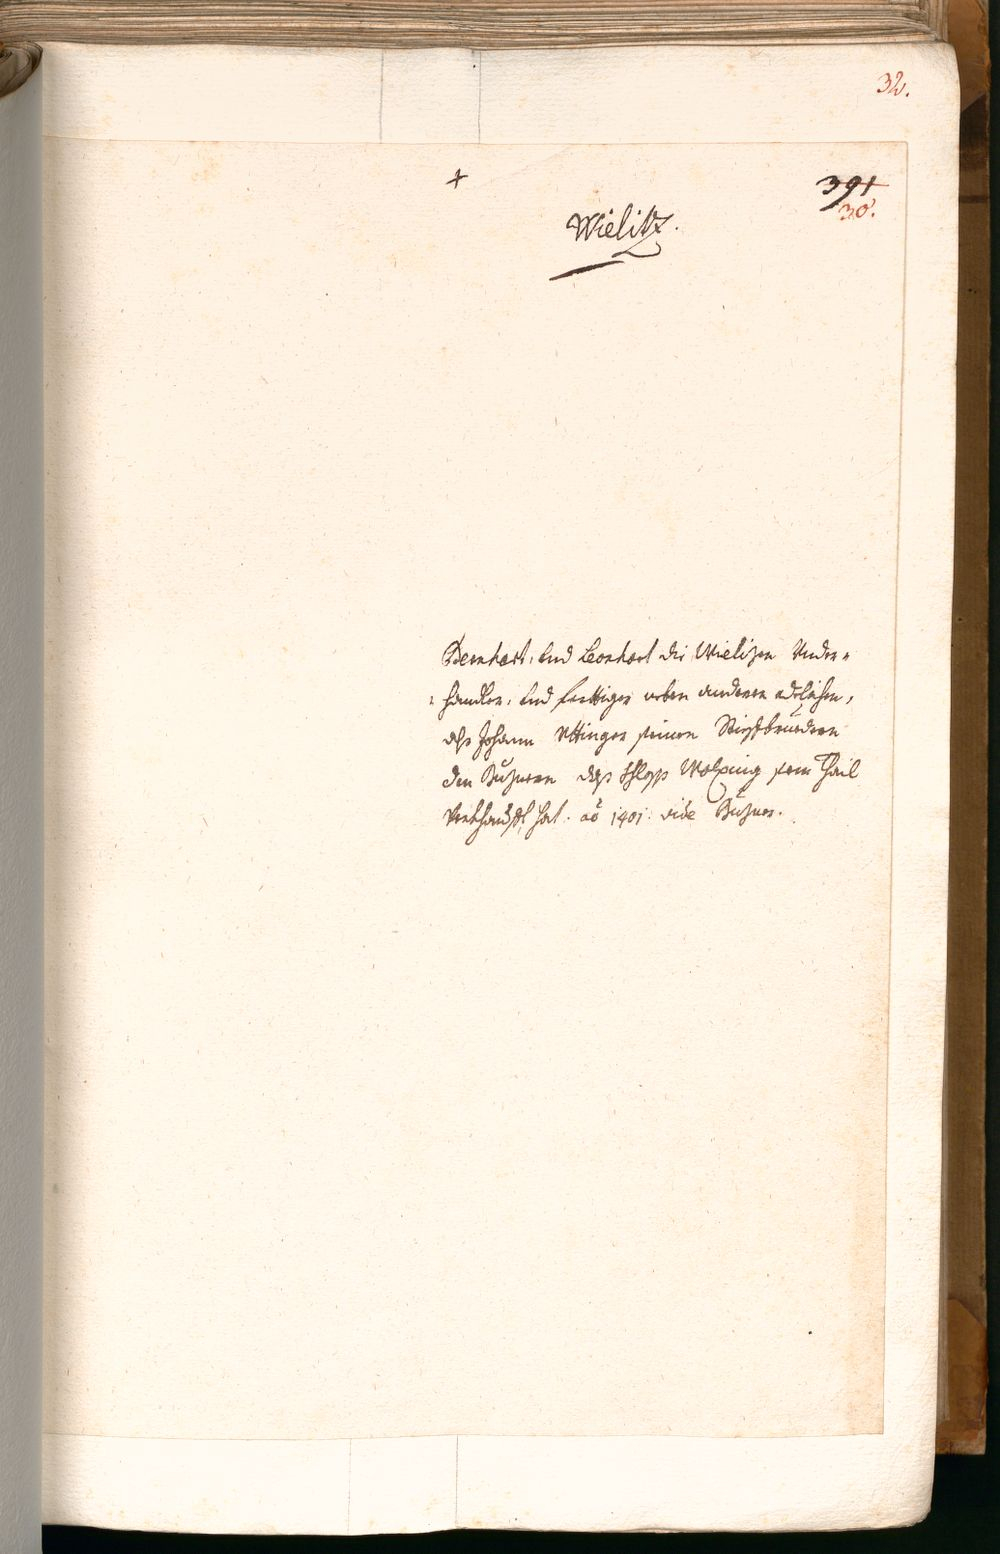 32.
+
391
30.
Wielitz.
Bernhart, und Leonhart die Wielizen Under-
handler, und ferttiger neben anderen adelichen,
als Johann Uttinger seinen Stieffbruedern
den Buzneren das Schloss Wolping sein Thail
Verkhaufft hat. ao 1401. vide Buzner.